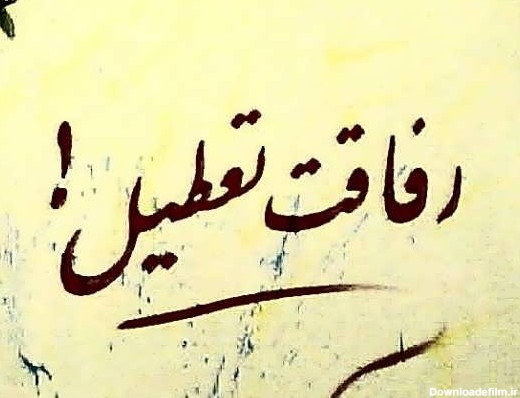 رفاقت تعطیل!
Downloadefilm.ir